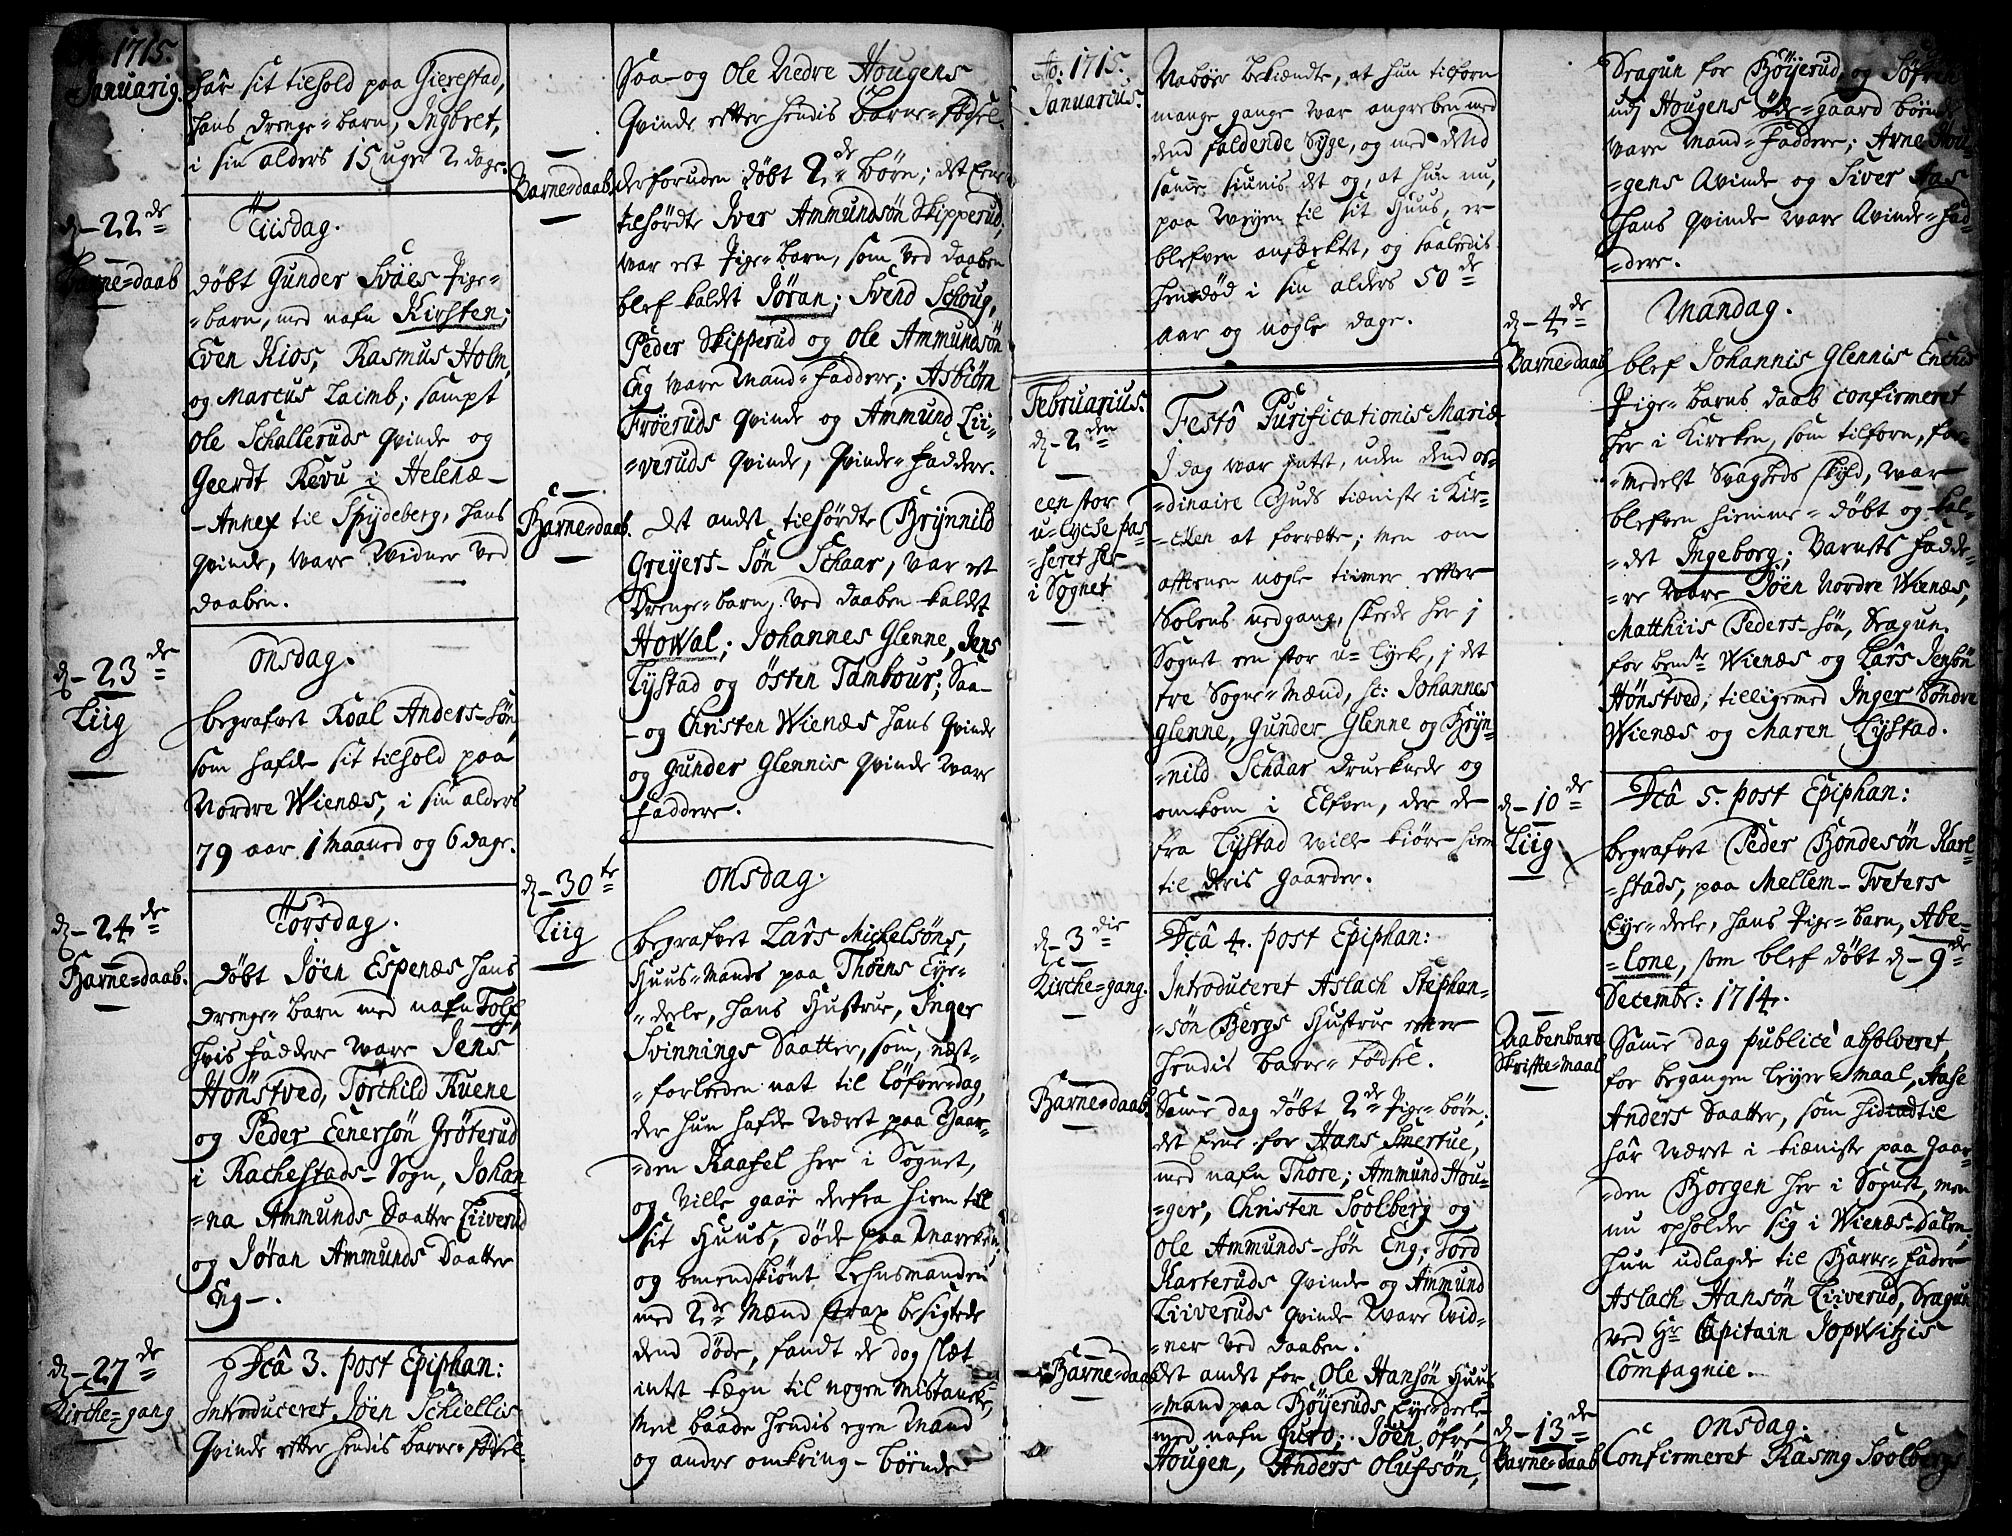 Ao. 1715.
Januarig.
har sit tilhold paa Gierestad,
hans Drenge-barn, Ingbret,
i sin alders 15 uger 2 dage.
d. 22de
Barne-daab
Tiisdag.
døbt Gunder Sväes Pige-
-barn, med nafn Kirsten;
Even Kios, Rasmus Holm,
og Marcus Laimb; sampt
Ole Schulleruds Qvinde og
Geerdt Revu i Helenæ-
-Annex til Spydeberg, hans
Qvinde, ware Widner ved
daaben.
d. 23de
Liig
Onsdag.
begrafvet Roal Anders-søn
som hafde sit tilhold paa
Nordre Wienæs, i sin alders
79 aar 1 Maaned og 6 dage.
d. 24de
Barne-daab.
Torsdag.
døbt Jöen Espenæs hans
Drenge-barn med nafn Tolf,
hvis faddere ware Jens
Hönstved, Torchild Ruene
og Peder Eenersön Gröterud
i Rachestads-Sogn, Johan-
-na Ammunds Daatter Liiverud
og Jöran Ammunds Daatter
Eng-.
d. 27de
Kirche-gang
Dca 3. post Epiphan:
Introduceret Jöen Schiellis
Qvinde efter hendis barne-födsel.
Saa- og Ole Nedre Hougens
Qvinde efter hendis Barne-födsel.
Barne-daab.
derforuden døbt 2de Börn; det Eene
tilhörte Iver Ammundsön Skipperud,
war et Pige-barn, som ved daaben
blef kaldet Jöran; Svend Schoug,
Peder Skipperud og Ole Ammundsön
Eng ware Mand-faddere; Asbiörn
Fröeruds Qvinde og Ammund Lii-
-veruds Qvinde, Qvinde-faddere.
Barne-daab.
Det andet tilhörte Brynnild
Greyers-Sön Schaar, war et
Drenge-barn, ved daaben kaldet
Howal; Johannes Glenne, Jens
Lystad og Östen Tambour; Saa-
-og Christen Wienæs hans Qvinde
og Gunder Glennis Qvinde ware
faddere.
d. 30te
Liig
Onsdag.
begrafvet Lars Michelsöns,
Huus-Mands paa Thöens Eye-
-deele, hans Hustrue, Inger
Svinnings Daatter, som, næst-
-forleden nat til Löfverdag,
der hun hafde været paa Gaar-
-den Raafel her i Sognet,
og ville gaae derfra hiem till
sit Huus, döde paa Marchen,
og omendskiönt Lehnsmanden
med 2de Mænd strax besigtede
dend döde, fandt de dog slæt
intet tegn til nogen mistancke,
Men baade hendis egen Mand
og andre omkring-börnde
Ao: 1715.
Januarius.
Naboer bekiendte, at hun tilforn
mange gange war angreben med
dend faldende Syge, og med dend
samme siunis det og, at hun nu,
paa Weyen til sit Huus, er
blefven anfæcktet, og saaledis
hendöd i sin alders 50de
aar og nogle dage.
Februarius.
d. 2den
een stor
u-lycke pas-
-seret her
i Sognet
Festô Purificationis Mariæ
I dag war intet, uden dend or-
-dinaire Guds tieniste i Kir-
-cken at forrette; Men om
aftenen nogle timer efter
Solens nedgang, skede her i
Sognet een stor u-lycke, i det
tre Sogne-Mænd, sc: Johannes
Glenne, Gunder Glenne og Bryn-
-nild Schaar drucknede og
omkom i Elfven, der de
fra Lystad wille kiöre hiem
til deris Gaarder.
d. 3die
Kirche-gang.
Dcâ 4. post Epiphan:
Introduceret Aslach Stephan-
-sön Bergs Hustrue efter
hendis barne-födsel.
Barne-daab.
Samme dag döbt 2de Pige-börn;
det Eene for Hans Smertue,
med nafn Thore; Ammund Hou-
-ger, Christen Soolberg og
Ole Ammunds-sön Eng. Tord
Karteruds Qvinde og Ammund
Liiveruds Qvinde ware wid-
-ner ved daaben.
Barne-daab
Det andet for Ole Hansön Huus-
-mand paa Böyeruds Eyendeele
med nafn Guro; Jöen Öfre
Hougen, Anders Olufsön,
Dragun for Böyerud, og
udi Hougens öde-gaard börnde
ware Mand-faddere; Arne Hou-
-gens Qvinde og Siver Aas
hans Qvinde ware Qvinde-fad-
-dere.
d. 4de
Barne-daab
Mandag.
blef Johannis Glennis Enckes
Pige-barns daab confirmeret
her i Kircken, som tilforn, for-
-medelst Svagheds skyld, war
blefven hiemme-döbt og kal-
-det Ingeborg; Barnets fadde-
-re ware Jöen Nordre Wienæs,
Matthiis Peders-sön, Dragun
for bemte Wienæs og Lars Jensön
Hönstved; tilligemed Inger Söndre
Wienæs og Maren Lystad.
d. 10de
Liig
Dcâ 5. post Epiphan:
begrafvet Peder Bondesön Karl-
-stads, paa Mellem-Tveters
Eye-deele, hans Pige-barn, Abe-
-lone, som blef döbt d. 9de
Decembr: 1714.
Aabenbare
Skrifte-maal
Samme dag publicè absolveret
for begangen leyer-maal, Aase
Anders Daatter, som hidindtil
har været i tieniste paa Gaar-
-den Borgen her i Sognet, men
nu opholder sig i Wienæs-Dalen;
hun udlagde til Barne-fader
Aslach Hansön Liiverud, Dragun
ved Hr Capitain Jopwitzis
Compagnie.
d. 13de
Barne-daab
Onsdag.
Confirmeret Rasmg Soolbergs